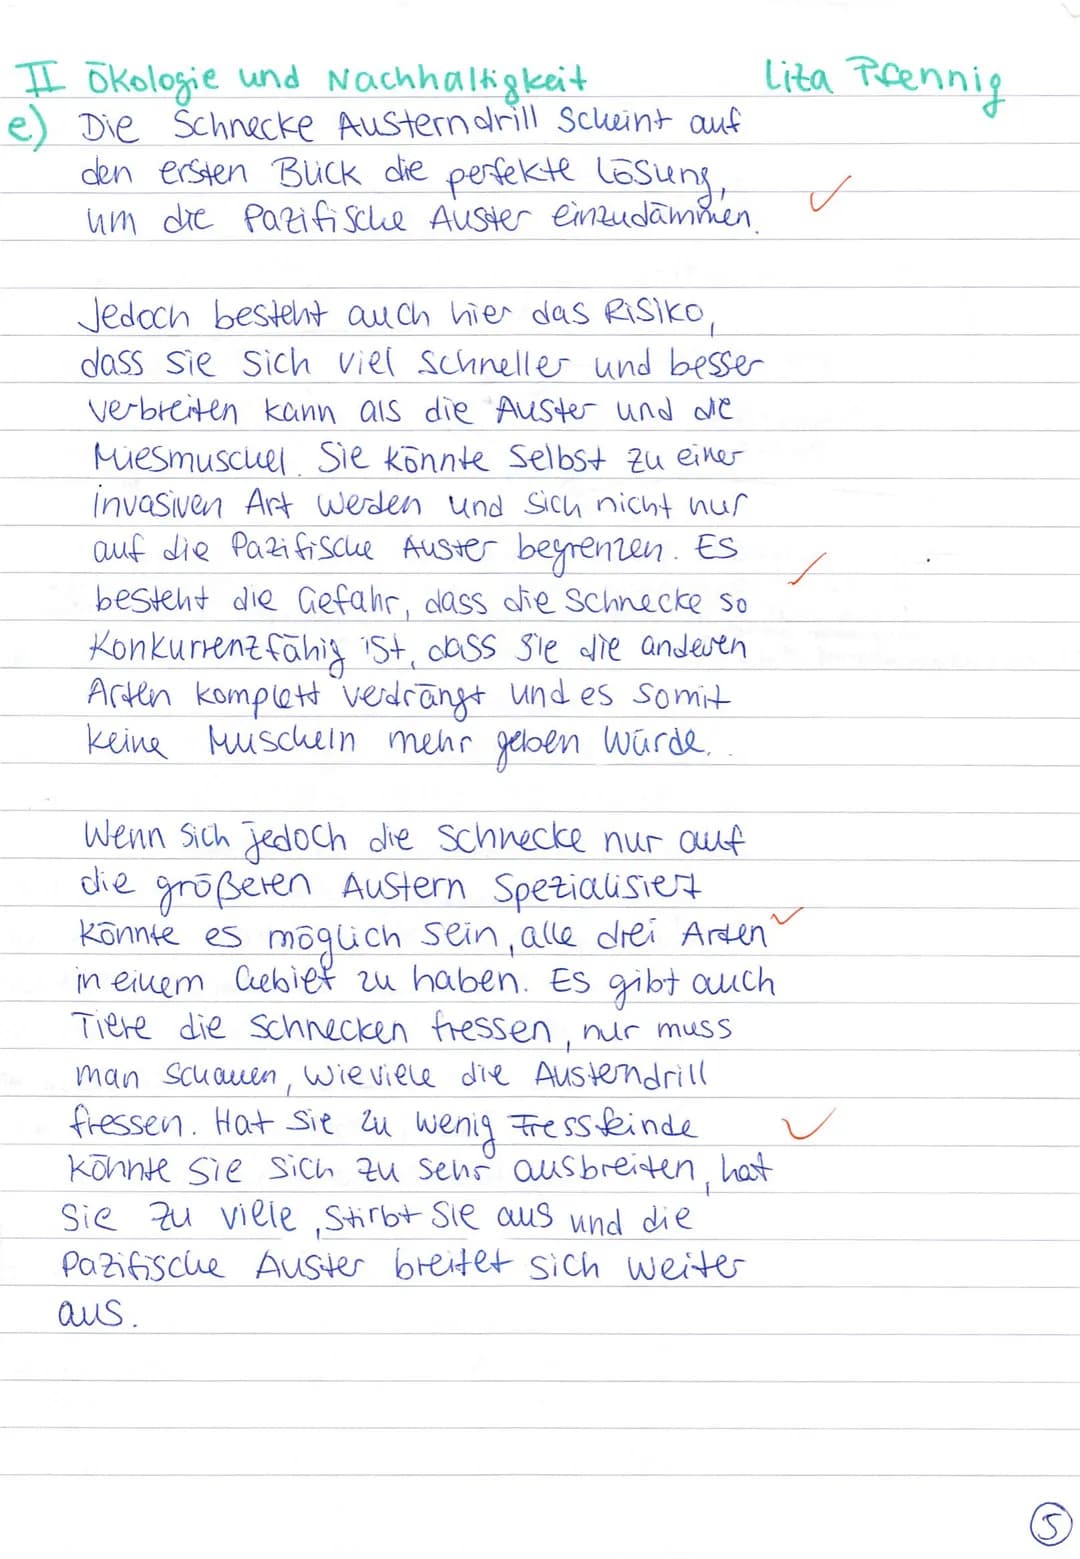 II Ökologie und Nachhaltigkeit Lita Pfennig
e) Die Schnecke Austerndrill scheint auf
den ersten Blick die perfekte Lösung,
um die Pazifische Auster einzudämmen.
Jedoch besteht auch hier das Risiko,
dass sie sich viel schneller und besser
verbreiten kann als die Auster und die
Miesmuschel. Sie könnte selbst zu einer
invasiven Art werden und sich nicht nur
auf die Pazifische Auster begrenzen. Es
besteht die Gefahr, dass die Schnecke so
Konkurrenzfähig ist, dass sie die anderen
Arten komplett verdrängt und es somit
keine Muscheln mehr geben würde.
Wenn sich jedoch die Schnecke nur auf
die größeren Austern spezialisiert
könnte es möglich sein, alle drei Arten
in einem Gebiet zu haben. Es gibt auch
Tiere die Schnecken fressen, nur muss
man schauen, wieviele die Austerndrill
fressen. Hat sie zu wenig Fressfeinde
könnte sie sich zu sehr ausbreiten, hat
sie zu viele, stirbt sie aus und die
Pazifische Auster breitet sich weiter
aus.
5